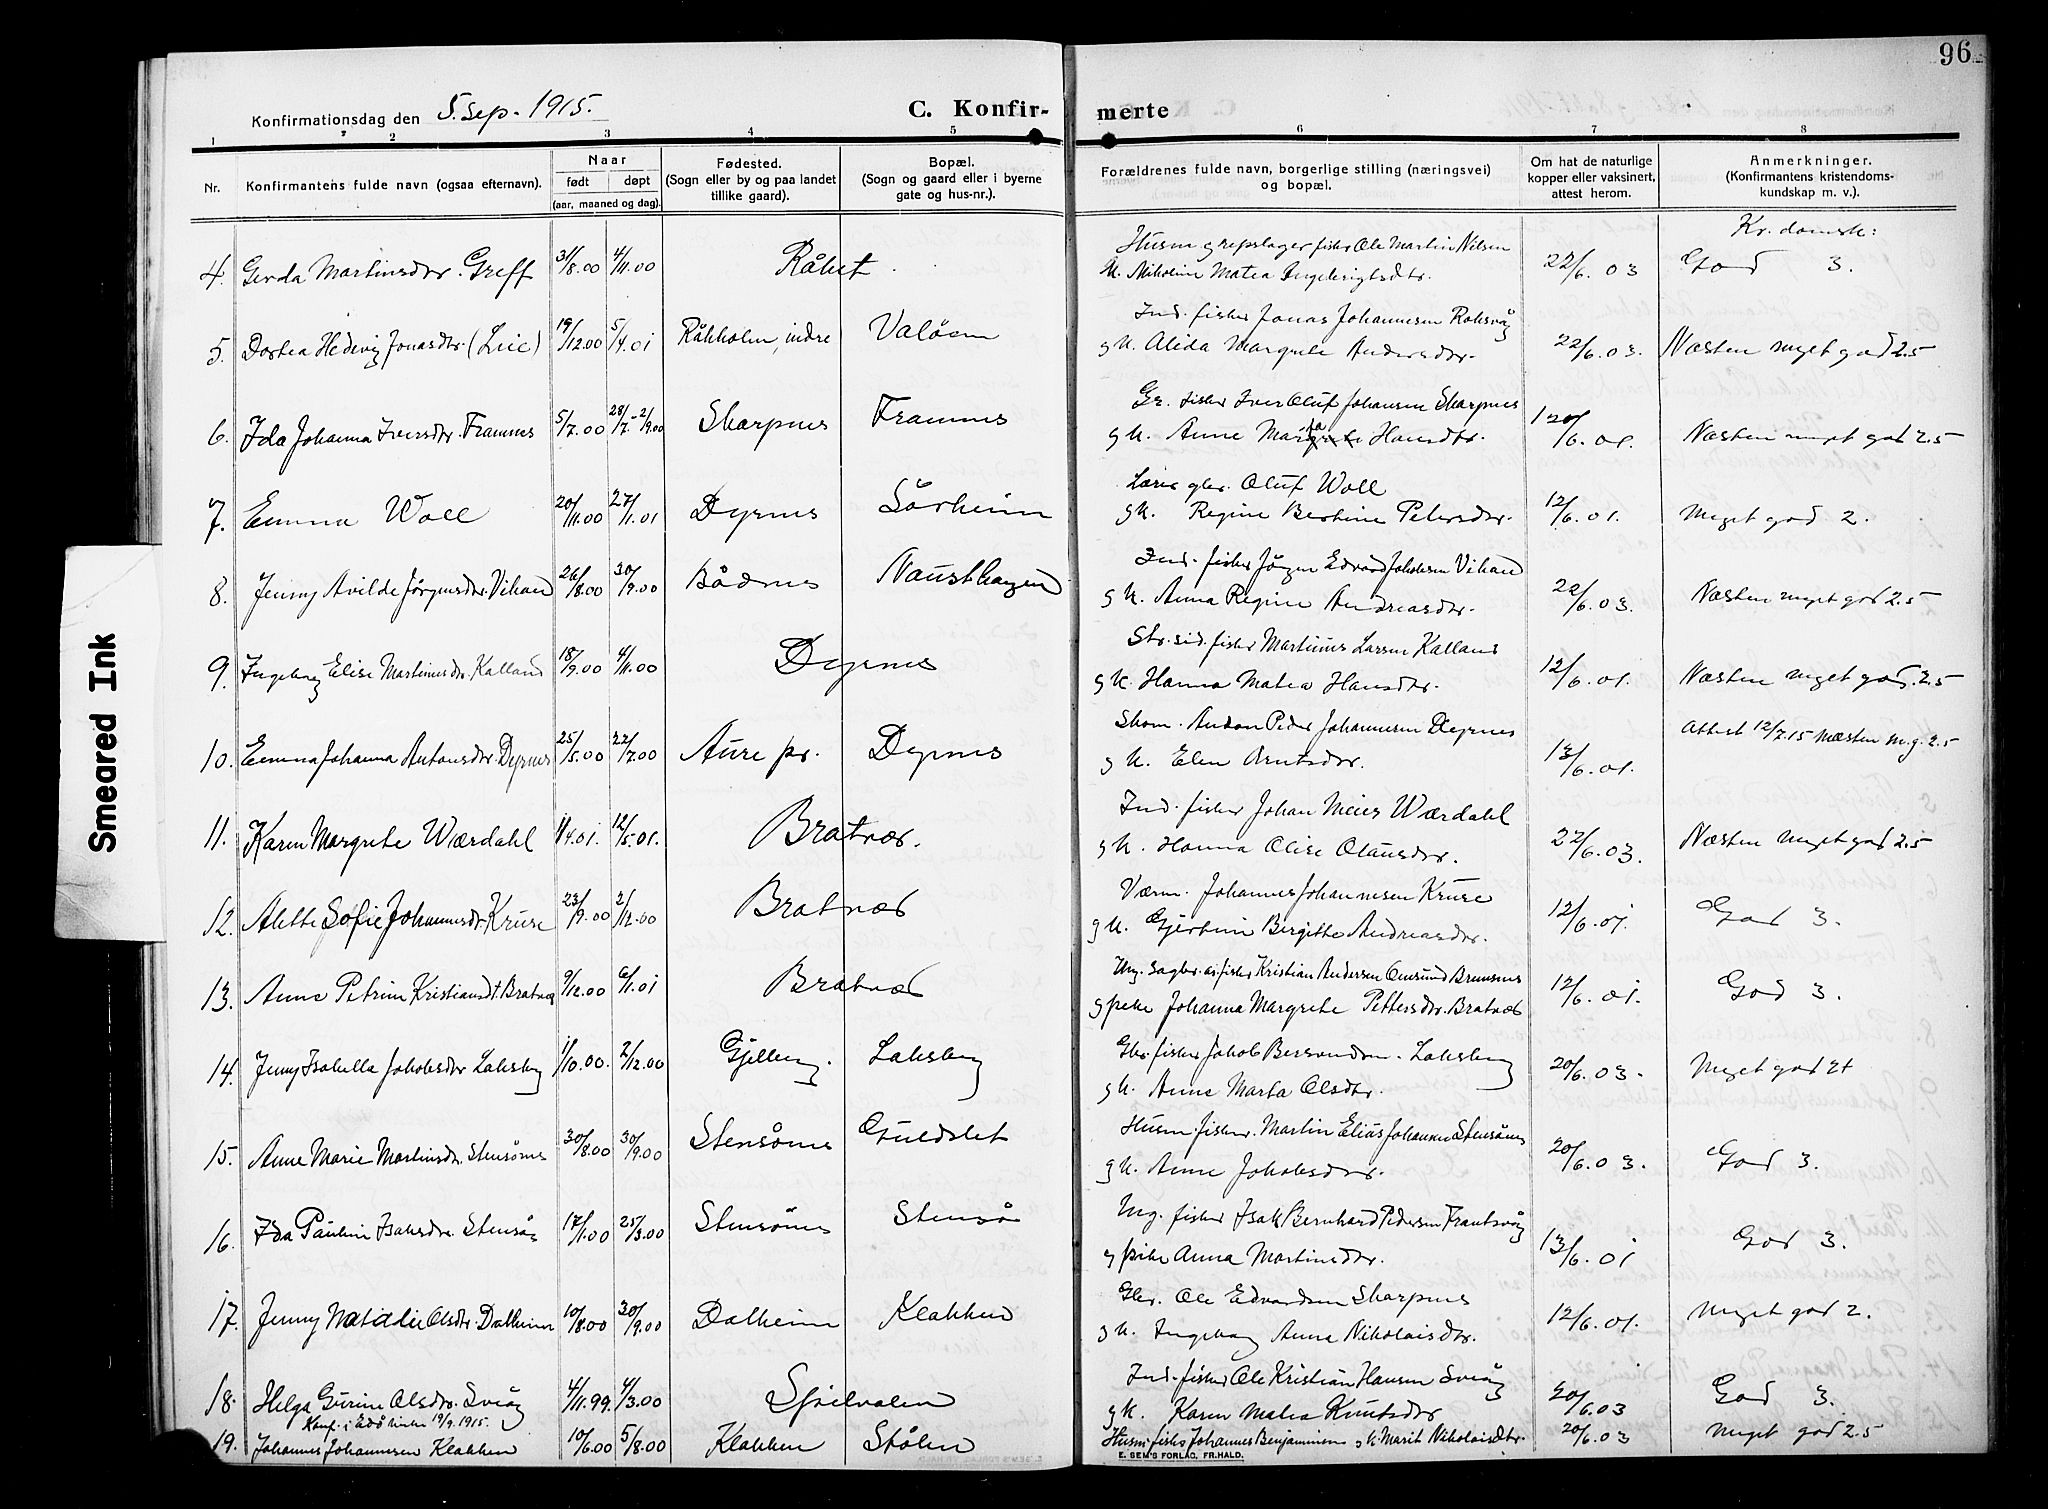 96
Konfirmationsdag den 5. Sep. 1915.
C. Konfir- merte
1 2 3 4 5 6 7 8
Nr. Konfirmantens fulde navn (ogsaa efternavn). Naar født døpt (aar, maaned og dag). Fødested. (Sogn eller by og paa landet tillike gaard). Bopæl. (Sogn og gaard eller i byerne gate og hus-nr.). Forældrenes fulde navn, borgerlige stilling (næringsvei) og bopæl. Om hat de naturlige kopper eller vaksinert, attest herom. Anmerkninger. (Konfirmantens kristendoms- kundskap m. v.).
Kr. domsk:
4. Gerda Martinsdtr. Greff 31/8.00 4/11.00 Husm. g repslager fisker Ole Martin Nilsen
K. Nikoline Matea Ingebrigtsdtr. 22/6.03 God 3.
5. Dortea Hedvig Jonasdtr. (Lie) 19/12.00 5/4.01 Råkholm, indre Valøen Ind. fisker Jonas Johannesen Roksvåg
g K. Alida Margrete Andersdtr. 22/6.03. Næsten meget god 2.5
6. Ida Johanna Iversdtr. Framnes 5/7.00 28/7-2/9.00 Skarpnes Framnes Gr. fisker Iver Oluf Johansen Skarpnes
g K. Anne Marta Hansdtr. 20/6.01. Næsten meget god 2.5
7. Emma Woll 20/11.00 27/1.01 Dyrnes Sørheim Lærer gbr. Oluf Woll
g K. Regine Bertine Petersdtr. 12/6.01. Meget god 2.
8. Jenny Avilde Jørgensdtr. Vikan 26/8.00 30/9.00 Bådnes Nausthaugen Ind. fisker Jørgen Edvard Jakobsen Vikan
g K. Anna Regine Andreasdtr. 22/6.03. Næsten meget god 2.5
9. Ingeborg Elise Martinusdtr. Kalland 18/9.00 4/11.00 Dyrnes Str. sid. fisker Martinus Larsen Kalland
g K. Hanna Matea Hansdtr. 12/6.01. Næsten meget god. 2.5
10. Emma Johanna Antonsdtr. Dyrnes 25/5.00 22/7.00 Aure pr. Dyrnes Skom. Anton Peder Johannesen Dyrnes
g K. Elen Arntsdtr. 13/6.01. Attest 12/7.15 Næsten m.g. 2.5
11. Karen Margrete Wærdahl 1/4.01. 12/5.01. Bratvær. Ind. fisker Johan Meier Wærdahl
g K. Hanna Olise Olausdtr. 22/6.03. Næsten meget god 2.5
12. Alette Sofie Johannesdtr. Kruse 23/9.00 2/12.00 Bratvær Værm. Johannes Johannesen Kruse
g K. Gjertine Birgitte Andreasdtr. 12/6.01 God 3.
13. Anne Petrine Kristiansdt. Bratvær 9/12.00 6/1.01 Bratvær Ung. fisker Kristian Andersen Omsund Brunsnes
g pike Johanna Margrete Pettersdtr. Bratvær 12/6.01. God 3.
14. Jenny Isabella Jakobsdtr. Laksberg 1/10.00. 2/12.00 Gjelberg. Laksberg Gbr. fisker Jakob Laksberg
g K. Anne Marta Olsdtr. 20/6.03. Meget god 2+
15. Anne Marie Martinsdtr. Stensønes 30/8.00 30/9.00 Stensønes Guldslet Husm. fisker. Martin Elias Johansen Stensønes
g K. Anne Jakobsdtr. 20/6.03. God 3.
16. Ida Pauline Isaksdtr. Stensø 17/1.00 25/3.00 Stensønes Stensø Ung. fisker Isak Bernhard Pedersen Frantsvåg
g pike Anna Martinsdtr. 13/6.01 God 3.
17. Jenny Natalie Olsdtr. Dalheim 10/8.00 30/9.00 Dalheim Klakken Gbr. Ole Edvardsen Skarpnes
g K. Ingeborg Anna Nikolaisdtr. 12/6.01. Meget god 2.
18. Helga Gurine Olsdtr. Sviåg 4/11.99. 4/3.00 Ind. fisker Ole Kristian Hansen Sviåg
g K. Karen Matea Knutsdtr 20/6.03 God 3.
Konf. i Edø kirke 19/9.1915.
19. Johannes Johannesen Klakken 10/6.00 5/8.00 Klakken Stølen Husm. fisker Johannes Benjaminsen g K Marit Nikolaisdtr. 20/6.03 Meget god 2.5
E. SEM'S FORLAG, FR.HALD.
Smeared Ink